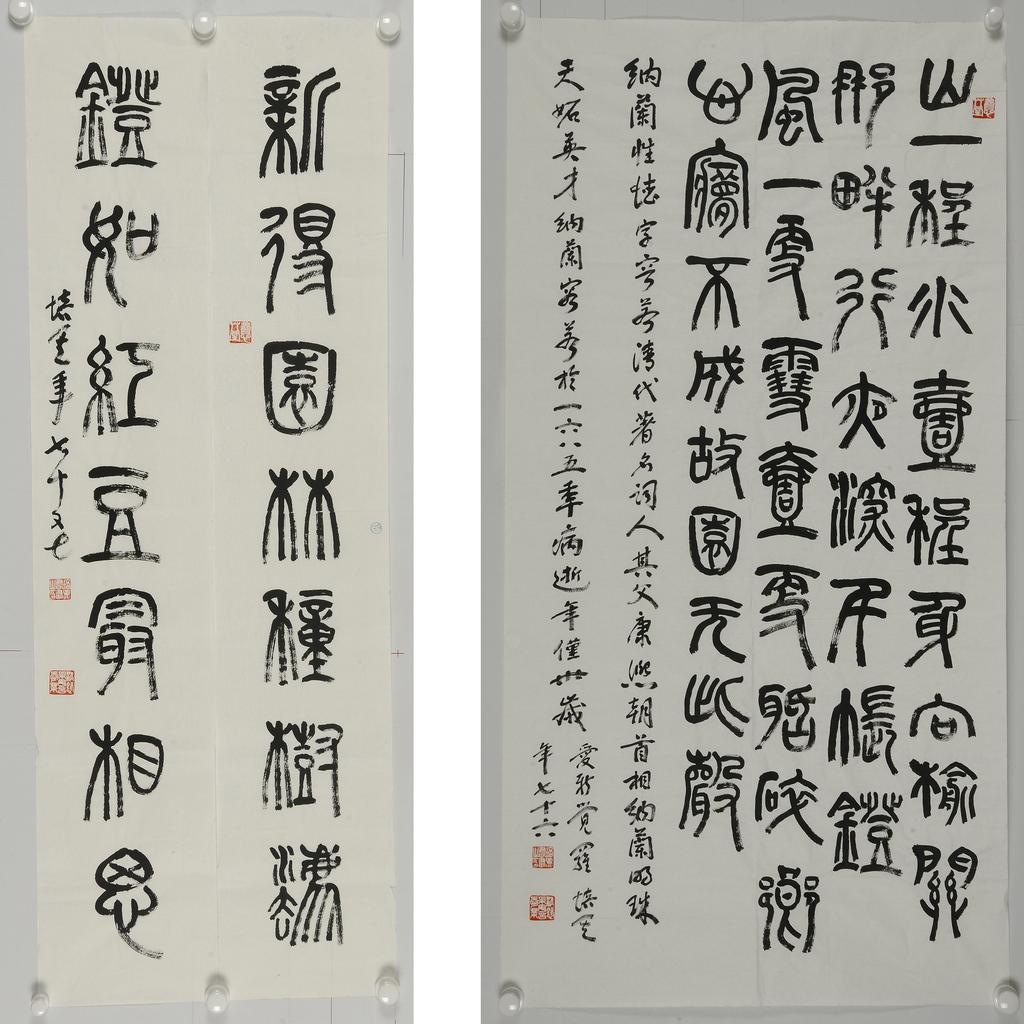 新得園林種樹灋
鐙如紅豆最相思
培年七十又七
山一程水壹程身向榆關
那畔行夜深千帳鐙
風一更雪壹更聒碎鄉
心夢不成故園无此聲
納蘭性德字容若清代著名詞人其父康熙朝首相納蘭明珠
天妬英才納蘭容若於一六八五年病逝年僅卅歲
愛新觉羅培
年七十六